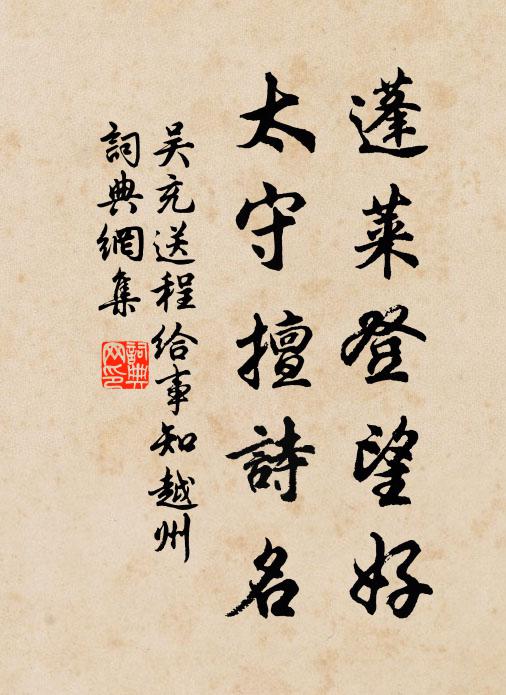 蓬莱登望好
太守擅詩名
吴充送程给事知越州
詞典網集
詞典网印